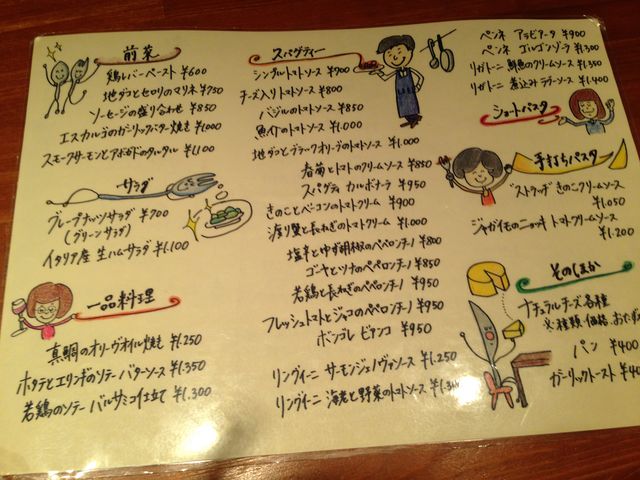 前菜
鶏レバーペースト ¥600
地ダコとセロリのマリネ ¥750
ソーセージの盛り合わせ ¥850
エスカルゴのガーリックバター焼き ¥1,000
スモークサーモンとアボガドのタルタル ¥1,100
サラダ
グレープナッツサラダ ¥700
(グリーンサラダ)
イタリア産 生ハムサラダ ¥1,100
一品料理
真鯛のオリーヴオイル焼き ¥1,250
ホタテとエリンギのソテー バターソース ¥1,350
若鶏のソテー バルサミコ仕立て ¥1,300
スパゲティー
シンプルトマトソース ¥700
チーズ入りトマトソース ¥800
バジルのトマトソース ¥850
魚介のトマトソース ¥1,000
地ダコとブラックオリーブのトマトソース ¥1,000
春菊とトマトのクリームソース ¥850
スパゲティ カルボナーラ ¥950
きのことベーコンのトマトクリーム ¥900
渡り蟹と長ねぎのトマトクリーム ¥1,000
塩辛とゆず胡椒のペペロンチーノ ¥800
ゴーヤとツナのペペロンチーノ ¥850
若鶏と長ねぎのペペロンチーノ ¥950
フレッシュトマトとジャコのペペロンチーノ ¥950
ボンゴレ ビアンコ ¥950
リングィーニ サーモンジェノヴァソース ¥1,250
リングィーニ 海老と野菜のトマトソース
ペンネ アラビアータ ¥900
ペンネ ゴルゴンゾーラ ¥1,300
リガトーニ 鮭のクリームソース ¥1,350
リガトーニ 煮込みラグーソース ¥1,400
ショートパスタ
手打ちパスタ
ストラッチ きのこクリームソース
¥1,050
ジャガイモのニョッキ トマトクリームソース
¥1,200
そのほか
ナチュラルチーズ各種
※種類、価格、おたず
パン ¥400
ガーリックトースト